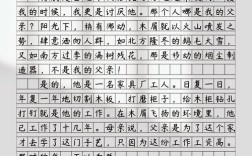 我的时候，我更是讨厌他。那个人哪是我的父
亲？阳光下，稍有挪动，木屑就以火山喷发之
势，肆意涌向人群，如北方隆冬的鹅毛大雪，
又如南方过季的满树残花，是移动的烟尘制
造器，不是我的父亲！
是的，他是一名家具厂工人。日复一日，
年复一年地切割木板，打磨柜子，给木柜钻孔
打钉就是他的工作。在木屑飞扬的环境里，他
已工作了十几年。母亲说，父亲是为了这个家
才去学了这门手艺，只因为这份工作工资高。